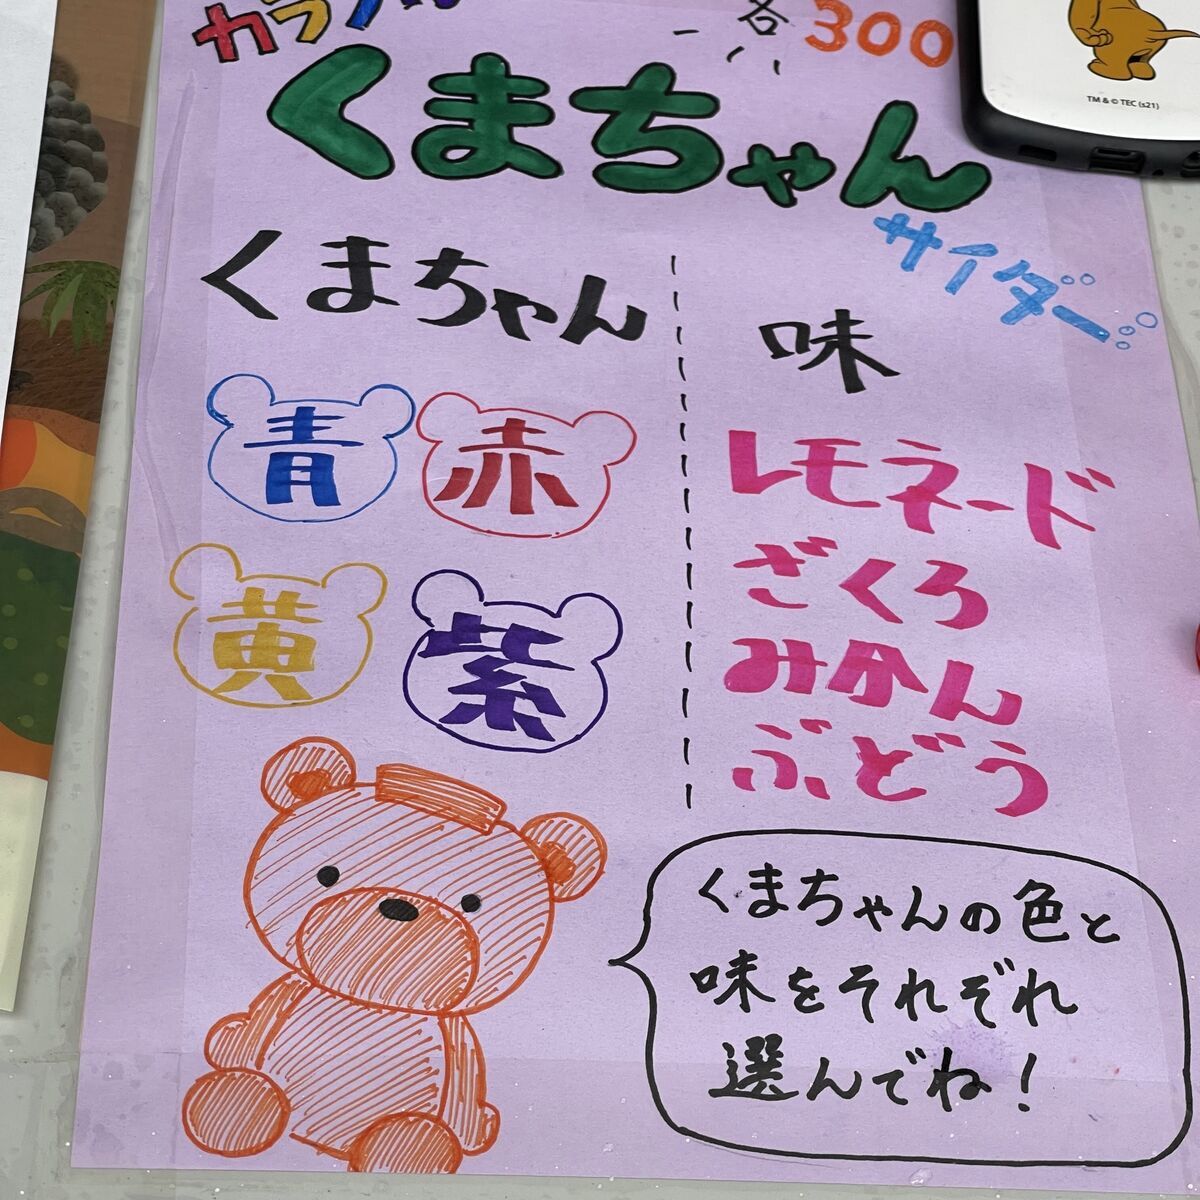 カラフル
各300
くまちゃん
サイダー
くまちゃん
味
青 赤
黄 紫
レモネード
ざくろ
みかん
ぶどう
くまちゃんの色と
味をそれぞれ
選んでね！
TM & © TEC (s21)